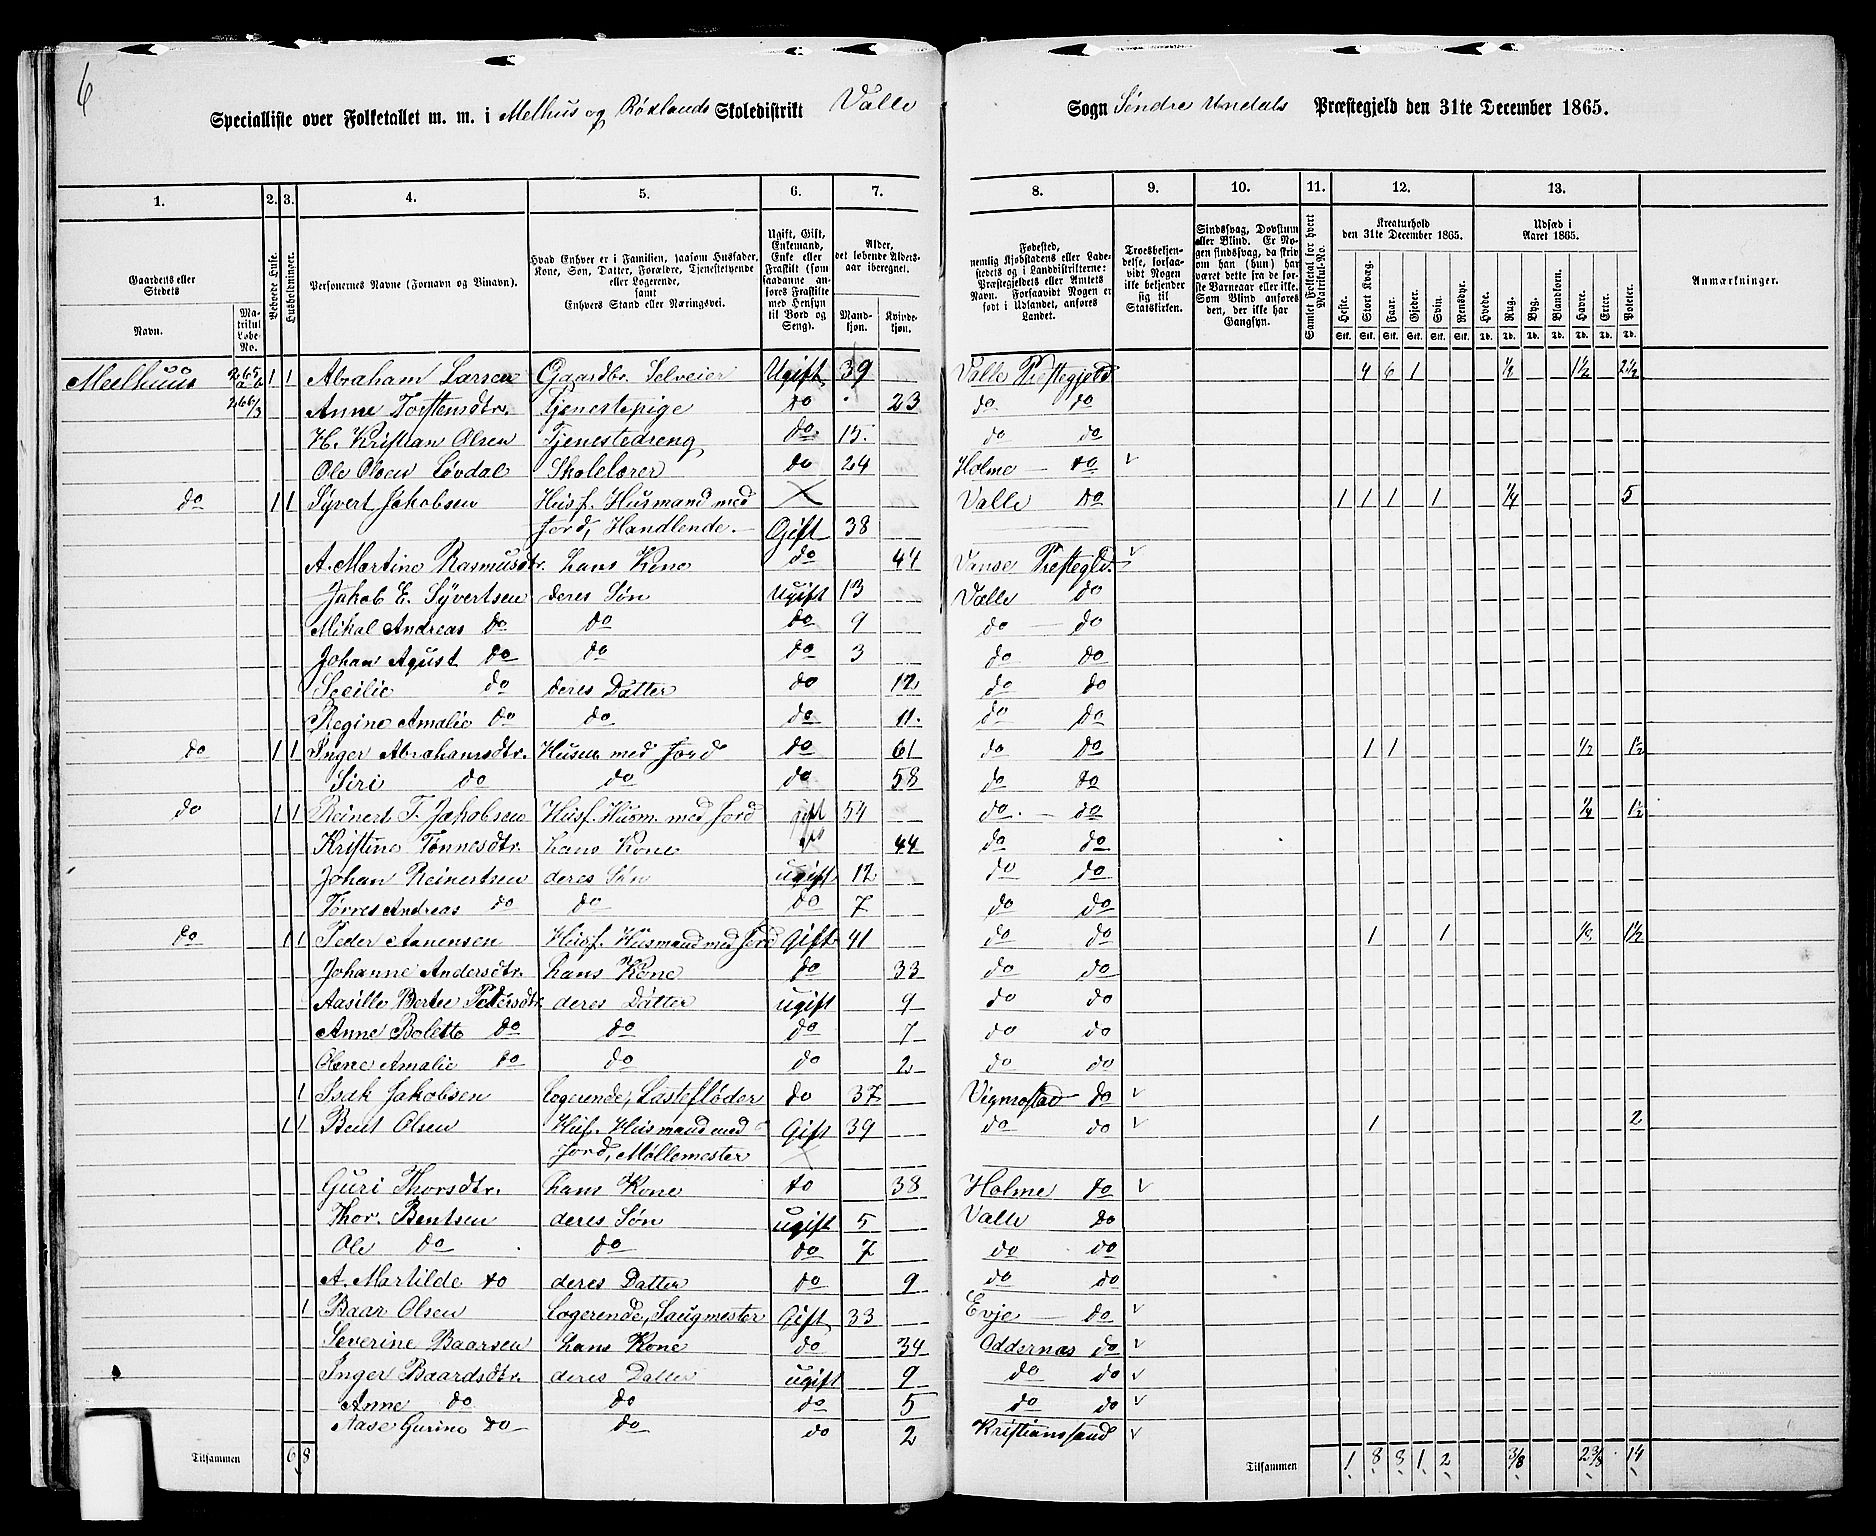 6
Specialliste over Folketallet m. m. i Melhus og Rødlands Skoledistrikt Valle Sogn Søndre Undals Præstegjeld den 31te December 1865.
1. 2. 3. 4. 5. 6. 7. 8. 9. 10. 11. 12. 13.
Gaardens eller Stedets
Navn. Matrikul Løbe-No.
Beboede Huse.
Husholdninger.
Personernes Navne (Fornavn og Binavn).
Hvad Enhver er i Familien, saasom Husfader, Kone, Søn, Datter, Forældre, Tjenestetyende eller Logerende, samt Enhvers Stand eller Næringsvei.
Ugift, Gift, Enkemand, Enke eller Fraskilt (som saadanne anføres Fraskilte med Hensyn til Bord og Seng).
Alder, det løbende Alders-aar iberegnet.
Mand-kjøn. Kvinde-kjøn.
Fødested, nemlig Kjøbstadens eller Ladestedets og i Landdistrikterne: Præstegjeldets eller Amtets Navn. Forsaavidt Nogen er født i Udlandet, anføres Landet.
Troesbekjendelse, forsaavidt Nogen ikke bekjender sig til Statskirken.
Sindssvag, Døvstum eller Blind. Er Nogen sindssvag, da skriv om han (hun) har været dette fra de første Barneaar eller ikke. Som Blind anføres den, der ikke har Gangsyn.
Samlet Folketal for hvert Matrikul-No.
Kreaturhold den 31te December 1865.
Heste. Stort Kvæg. Faar. Gjeder. Svin. Rensdyr.
Udsæd i Aaret 1865.
Hvede. Rug. Byg. Blandkorn. Havre. Erter. Poteter.
Anmærkninger.
Meelhuus 265 a b 1 1 Abraham Larsen Gaardbr. Selveier Ugift 39 Valle Præstegjeld 4 6 1 1/8 1½ 2½
266/3 Anne Torstensdtr. Tjenestepige do 23 do do
H. Kristian Olsen Tjenestedreng do 15 do do
Ole Olsen Løvdal Skolelærer do 24 Holme do
do 1 1 Syvert Jakobsen Husf. Husmand med Valle do 1 1 1 1 ¼ 5
Jord, Handlende. Gift 38
A. Martine Rasmusdtr. hans Kone do 44 Vanse Præstegld.
Jakob E. Syvertsen deres Søn Ugift 13 Valle do
Mikal Andreas do do do 9 do do
Johan Agust do do do 3 do do
Secilie do deres Datter do 12 do do
Regine Amalie do do do 11 do do
do 1 1 Inger Abrahamsdtr. Husm. med Jord do 61 do do 1 1 ½ 1½
Siri do do do 58 do do
do 1 1 Reinert T. Jakobsen Husf. Husm. med Jord gift 54 do do ¼ 1½
Kristine Tønnesdtr. hans Kone do 44 do do
Johan Reinertsen deres Søn ugift 12 do do
Torres Andreas do do do 7 do do
do 1 1 Peder Aanensen Husf. Husmand med Jord Gift 41 do do 1 1 1/8 1½
Johanne Andersdtr. hans Kone do 33 do do
Aasille Bertee Pedersdtr. deres Datter ugift 9 do do
Anne Bolette do do do 7 do do
Olene Amalie do do do 2 do do
1 Isak Jakobsen Logerende, Lastefløder do 37 Vigmostad do
1 1 Bent Olsen Husf. Husmand med Gift 39 do do 1 2
Jord, Møllemester
Guri Thorsdtr. hans Kone do 38 Holme do
Thor. Bentsen deres Søn ugift 5 Valle do
Ole do do do 7 do do
A. Martilde do deres Datter do 9 do do
1 Baar Olsen Logerende, Saugmester Gift 33 Evje do
Severine Baarsen hans Kone do 34 Oddernæs do
Inger Baardsdtr. deres Datter ugift 9 do do
Anne do do do 5 do do
Aase Gurine do do do 2 Kristianssand
Tilsammen 6 8 Tilsammen 1 8 8 1 2 3/8 2 3/8 14